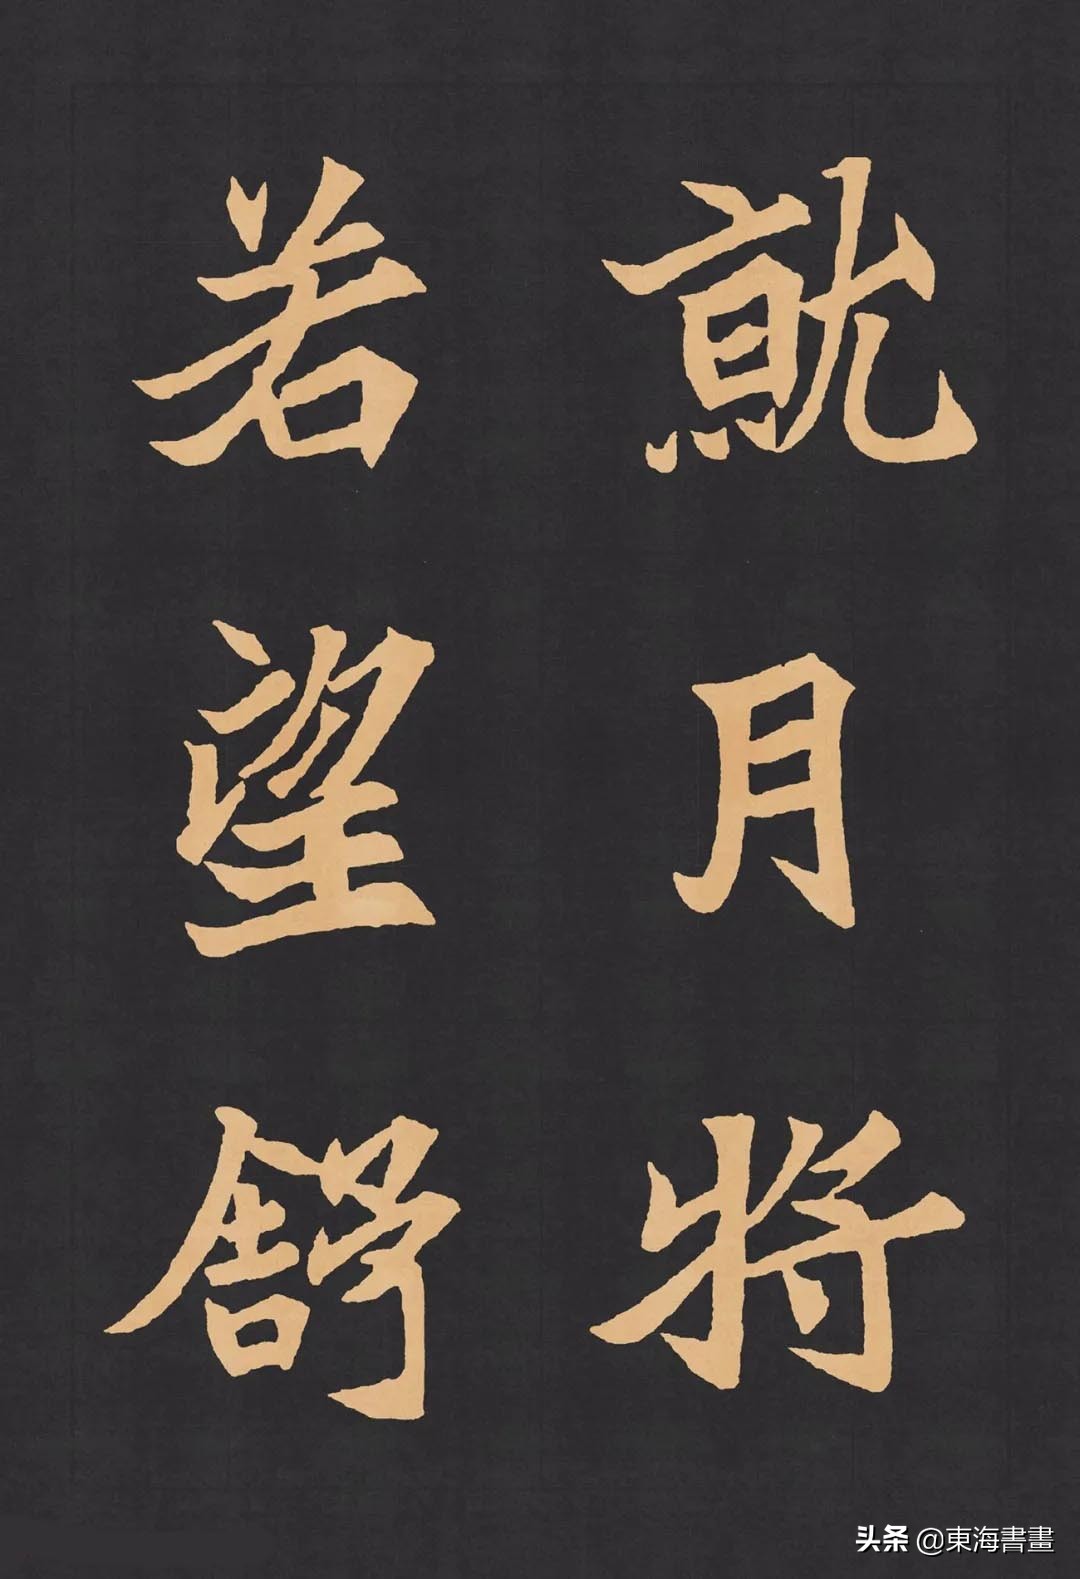 就月将
若望舒
头条 @東海書畫